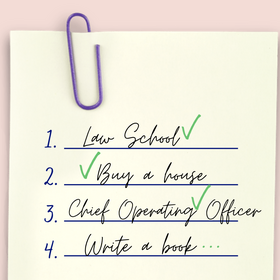 1. Law School ✓
2. ✓ Buy a house
3. Chief Operating ✓ Officer
4. Write a book ...